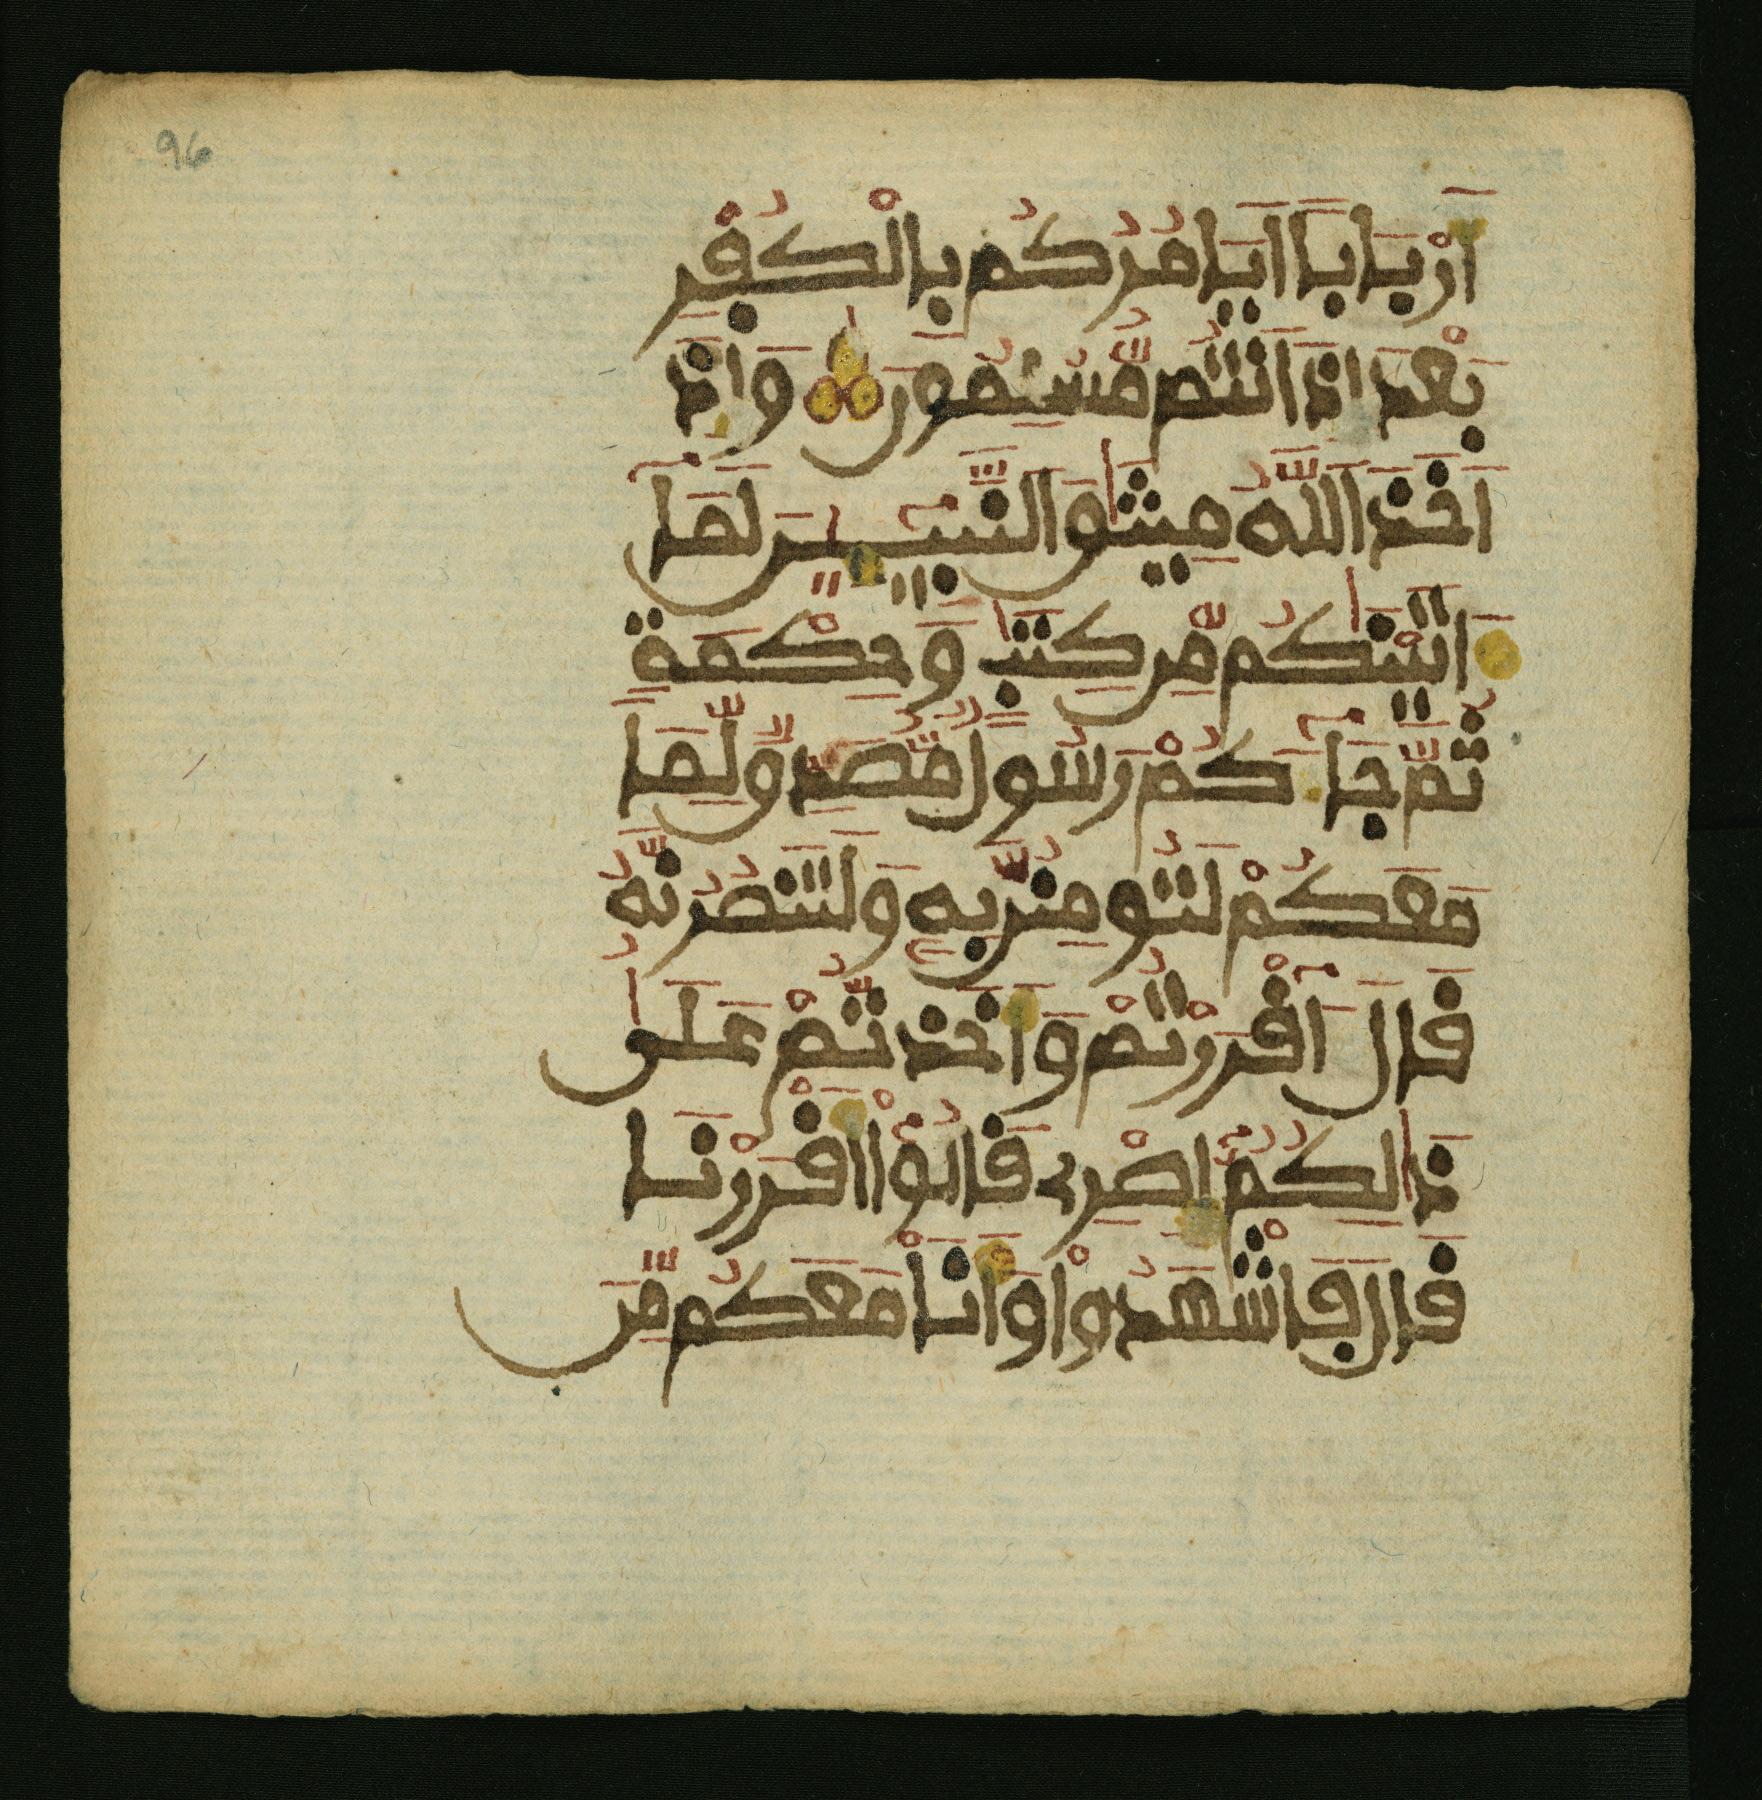 96
اَرْبَابًا اَيَامُرُكُم بِالْكُفْرِ
بَعْدَ اِذَ اَنتُم مُّسْلِمُونَ وَاِذَ
اَخَذَ اَللَّهُ مِيثَٰقَ اَلنَّبِيـِٕۧينَ لَمَا
ءَاتَيْنَٰكُم مِّن كِتَٰبٍ وَحِكْمَةٍ
ثُمَّ جَآءَكُمْ رَسُولٌ مُّصَدِّقٌ لِّمَا
مَعَكُمْ لَتُومِنُنَّ بِهِۦ وَلَتَنصُرُنَّهُۥ
قَالَ ءَآقْرَرْتُمْ وَأَخَذتُّمْ عَلَىٰ
ذَٰلِكُمُۥٓ إِصْرِے قَالُوٓاْ أَقْرَرْنَا
قَالَ فَاشْهَدُواْ وَأَنَاْ مَعَكُم مِّنَ